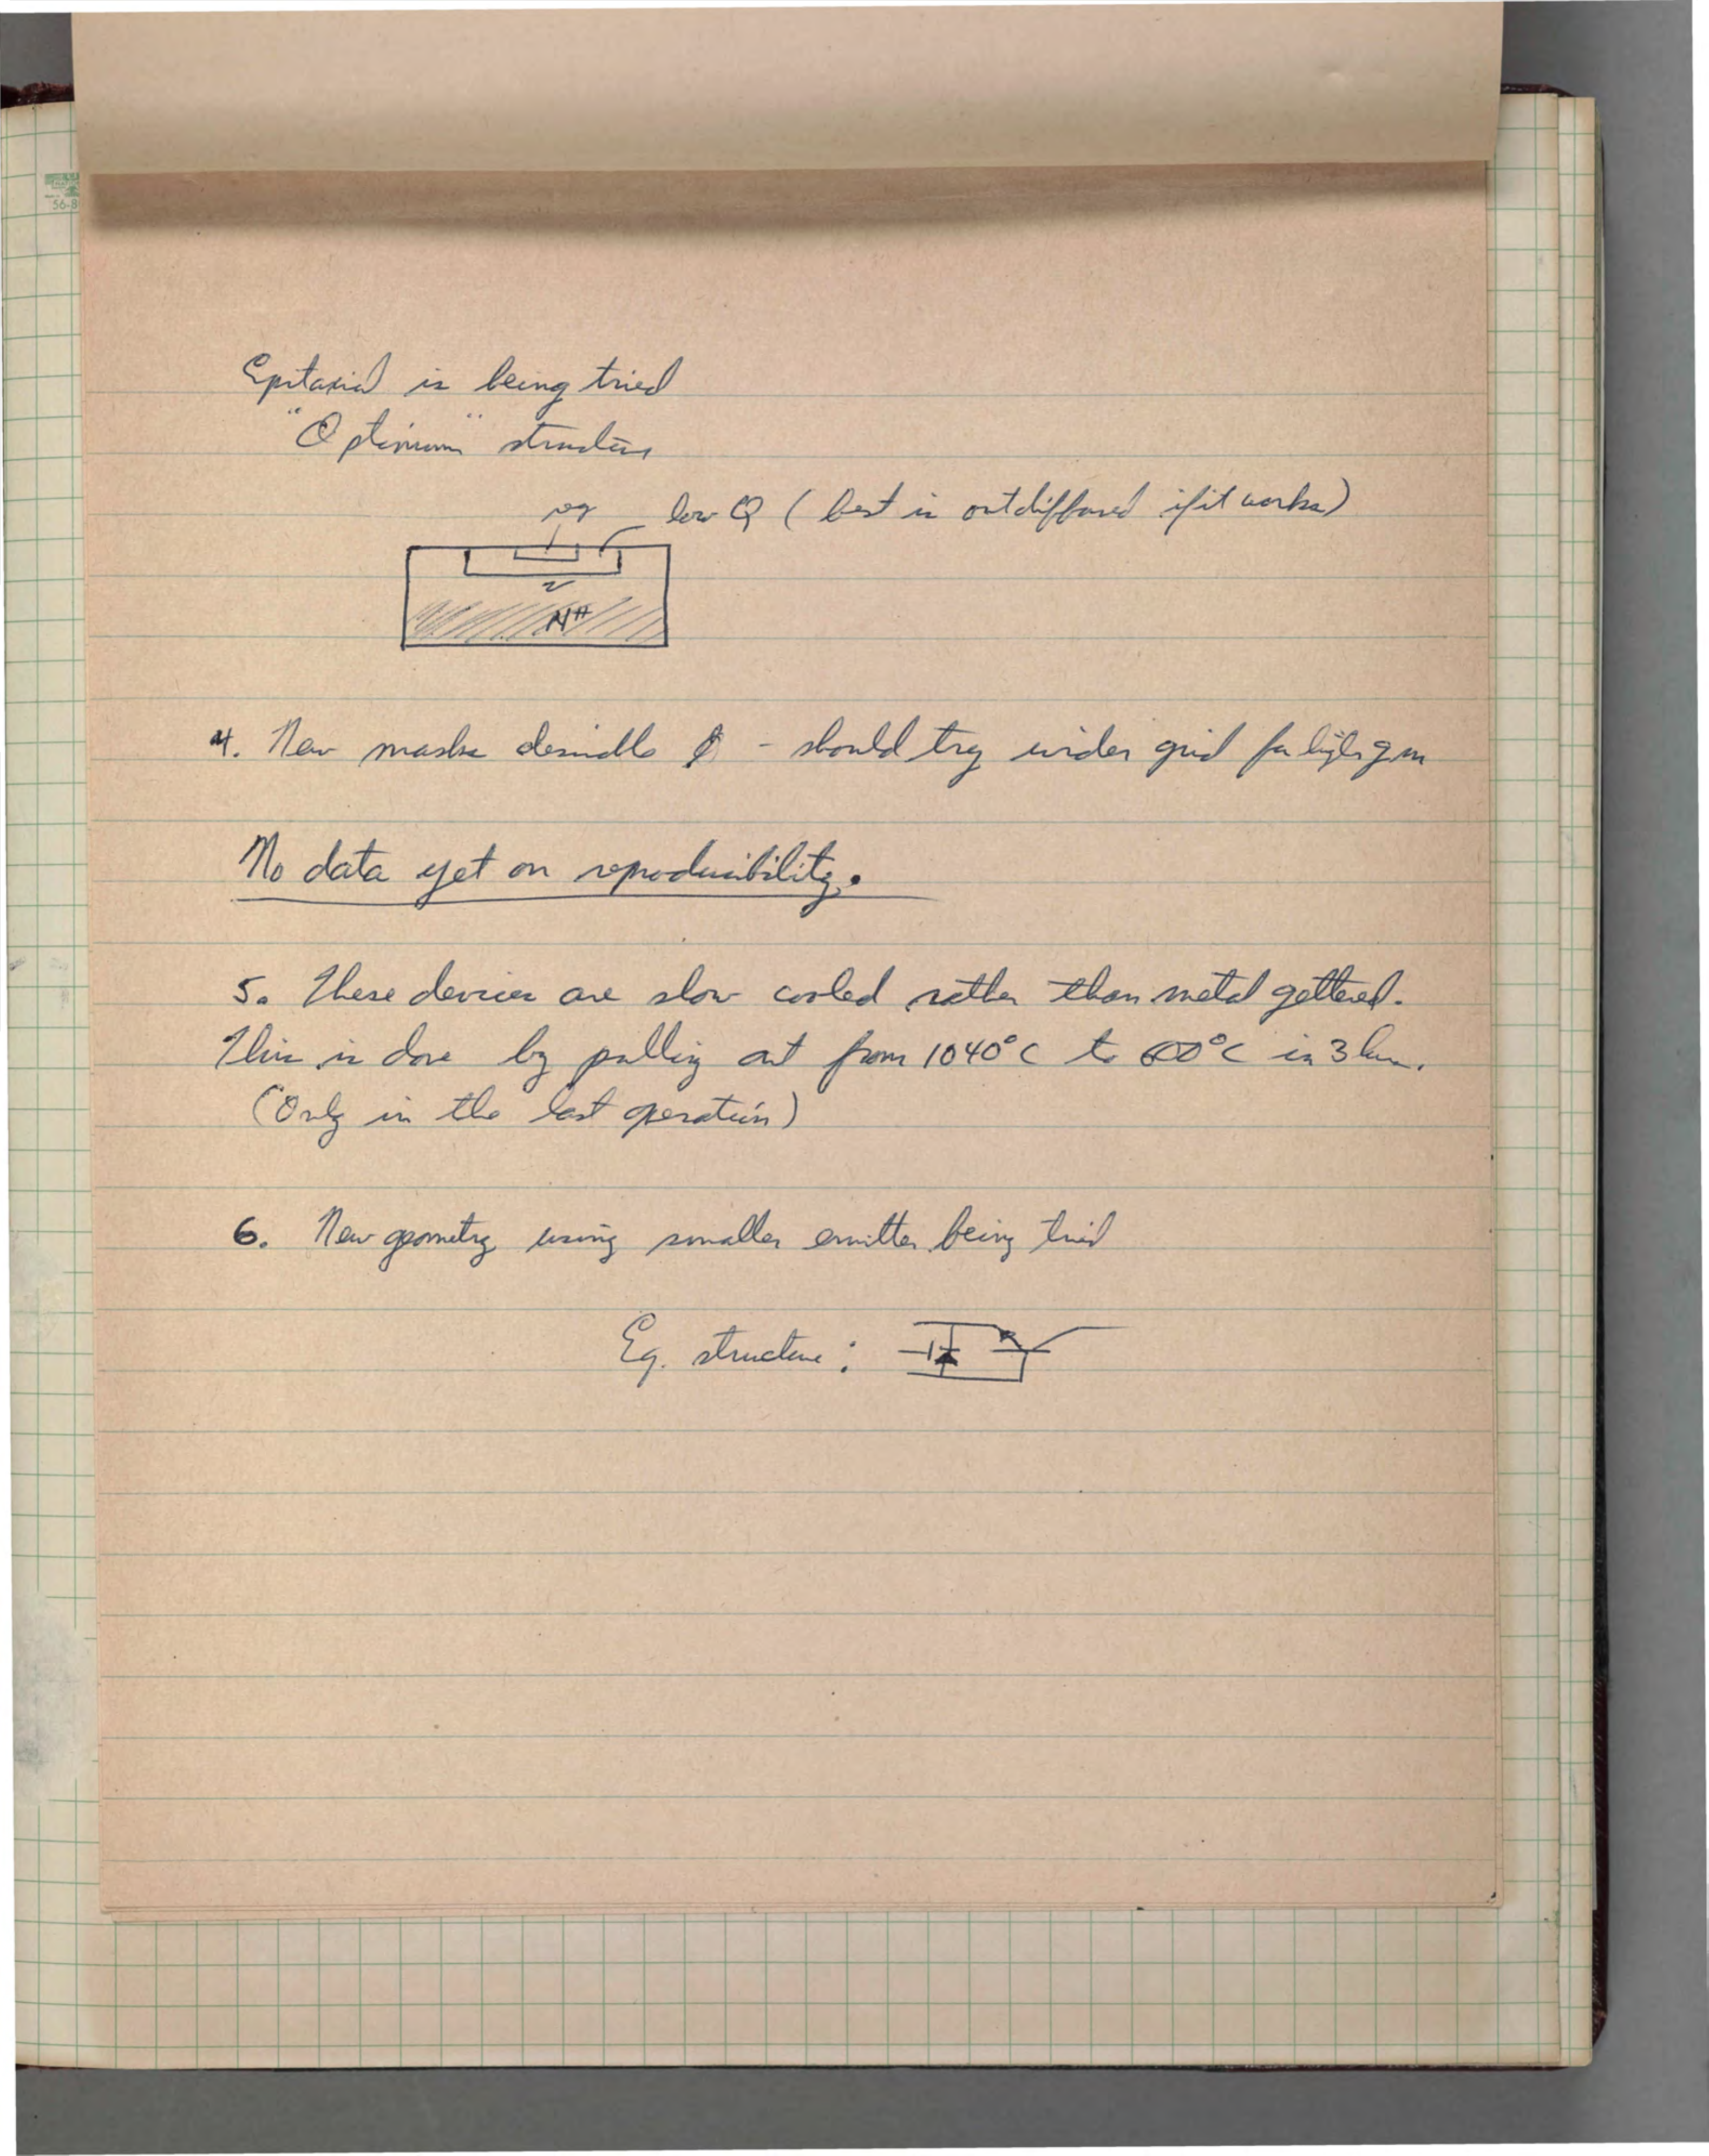 56-8
Epitaxial is being tried
"Optimum" structure
low Q (best is outdiffused if it works)
N+
4. New masks desirable - should try wider grid for higher gm
No data yet on reproducibility.
5. These devices are slow cooled rather than metal gettered.
This is done by pulling out from 1040°C to 600°C in 3 hrs.
(Only in the last operation)
6. New geometry using smaller emitter being tried
Eq. structure: